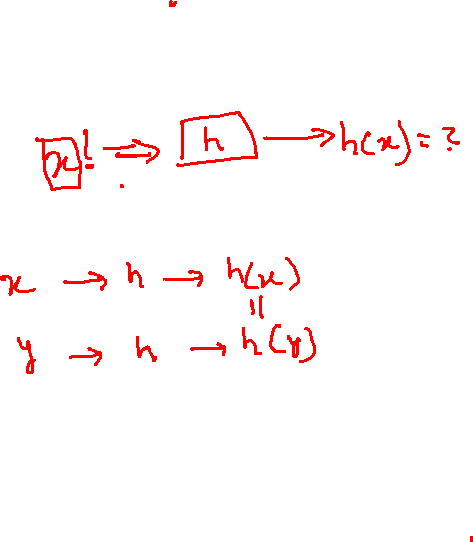 x! ⇒ h → h(x) = ?
x → h → h(x)
=
y → h → h(y)